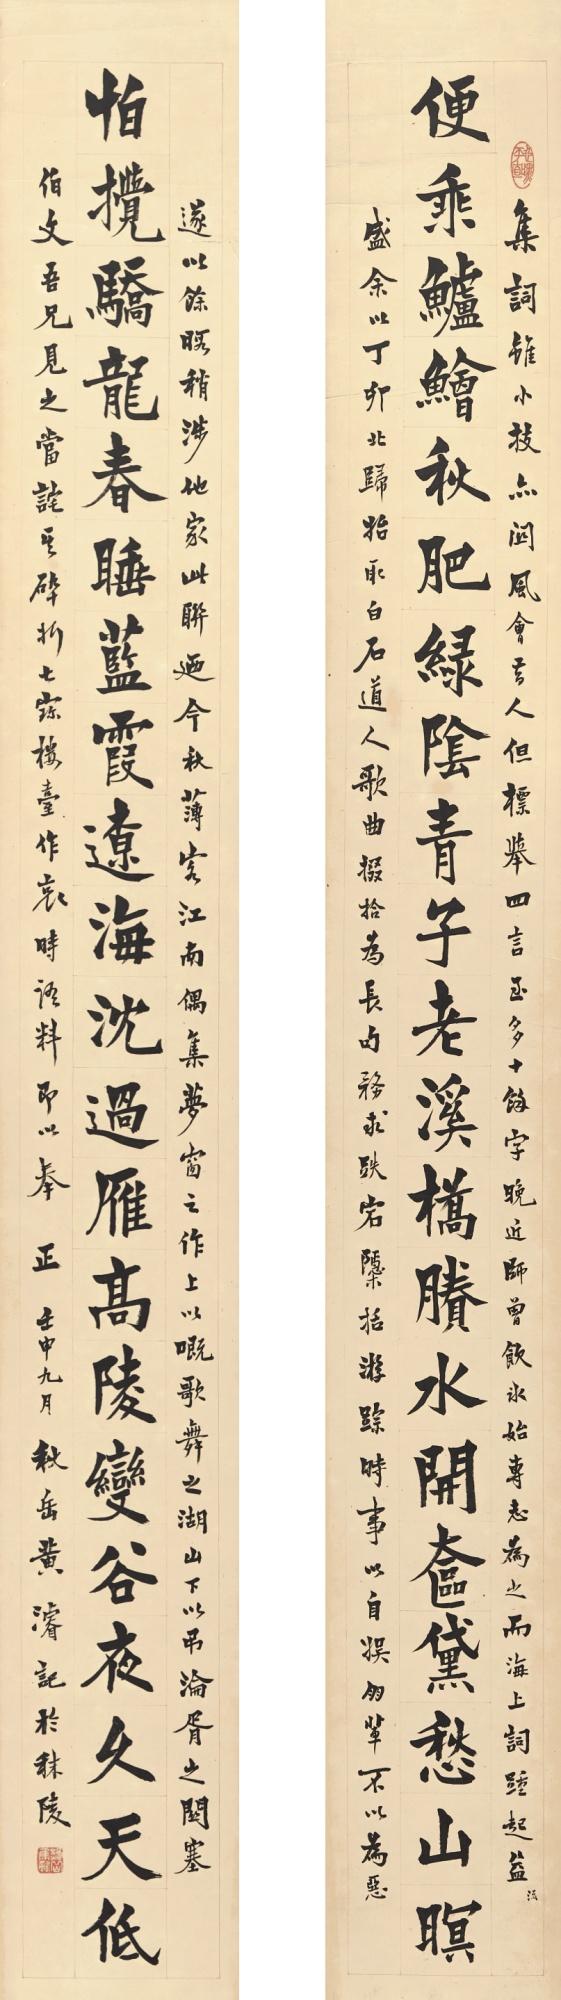 集詞雖小技亦関風會昔人但標舉四言至多十餘字晚近師曾飲冰始專志為之而海上詞踵起益
流
便乘鱸鱠秋肥綠陰青子老溪橋賸水開奩黛愁山暝
盛余以丁卯北歸始取白石道人歌曲掇拾為長句務求跌宕隱括游踪時事以自娛朋輩不以為惡
遂以餘暇稍涉他家此聯迺今秋薄客江南偶集夢窗之作上以嘅歌舞之湖山下以弔淪胥之關塞
怕攬驕龍春睡藍霞遼海沈過雁高陵變谷夜久天低
伯文吾兄見之當詫其碎折七寶樓臺作哀時語料即以奉正 壬申九月 秋岳黃濬記於秣陵